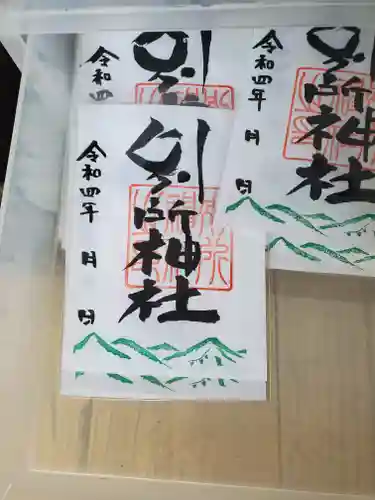 令和四年
別
令和四年 月 日
別所神社
令和四年 月 日
別所神社